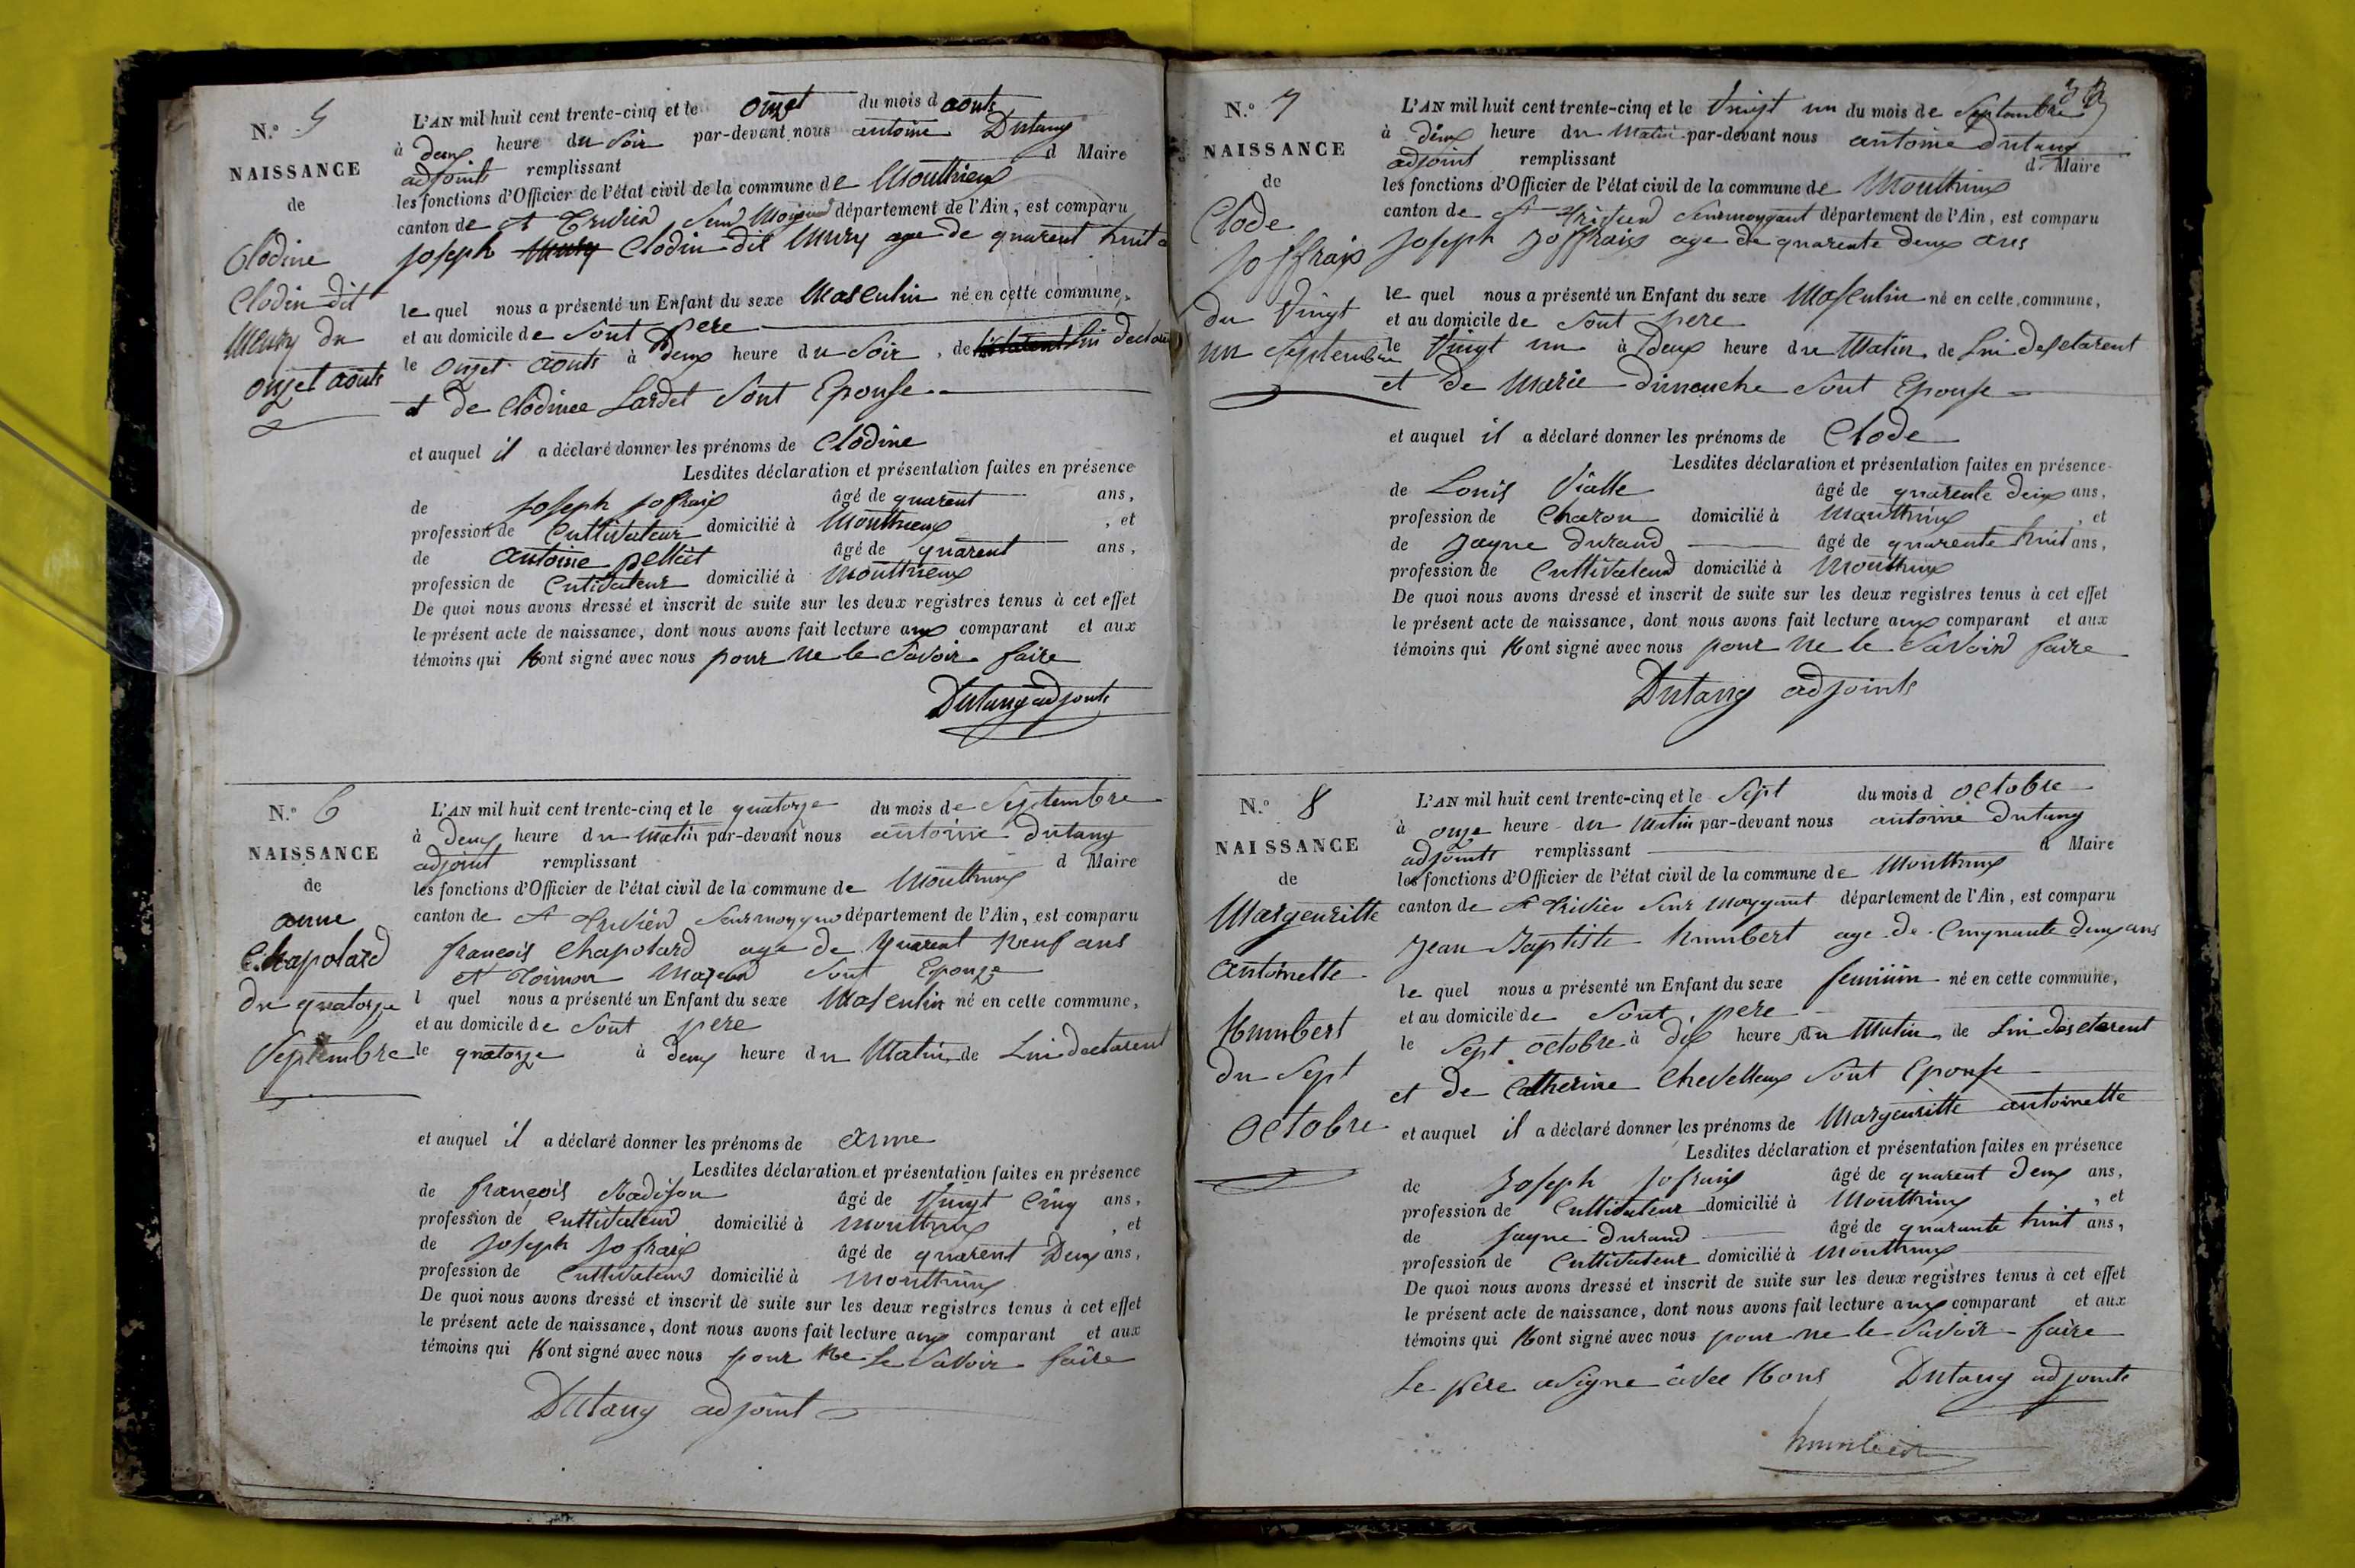 N.° 5
NAISSANCE
de
Clodine
Clodin dit
Meury du
onzet aouts
L'AN mil huit cent trente-cinq et le onzet du mois d aouts
à deux heure du Soir par-devant nous antoine Dutang
adjoints remplissant d Maire
les fonctions d'Officier de l'état civil de la commune de Mouthieux
canton de St Trivier Seur Moignans département de l'Ain, est comparu
joseph Clodin dit Meury age de quarent huit a
le quel nous a présenté un Enfant du sexe Masculin né en cette commune,
et au domicile de Sont pere
le onzet aouts à deux heure du Soir, de Lui declarent
et de Clodinee Lardet Sont Epouse
et auquel il a déclaré donner les prénoms de Clodine
Lesdites déclaration et présentation faites en présence
de joseph jofraix âgé de quarent ans,
profession de Cultivateur domicilié à Mouthieux, et
de antoine pelliet âgé de quarent ans,
profession de Cutivateur domicilié à Mouthieux
De quoi nous avons dressé et inscrit de suite sur les deux registres tenus à cet effet
le présent acte de naissance, dont nous avons fait lecture aux comparant et aux
témoins qui Nont signé avec nous pour ne le Savoir faire
Dutang adjouts
N.° 6
NAISSANCE
de
anne
Chapolard
du quatorze
Septembre
L'AN mil huit cent trente-cinq et le quatorze du mois de Septembre
à deux heure du Matin par-devant nous antoine Dutang
adjoint remplissant d Maire
les fonctions d'Officier de l'état civil de la commune de Mouthieux
canton de St Trivier Seurmoignans département de l'Ain, est comparu
françois Chapolard age de quarent neuf ans
et Toinon Sont Epouze
l quel nous a présenté un Enfant du sexe Masculin né en cette commune,
et au domicile de Sont pere
le quatorze à deux heure du Matin, de Lui declarent
et auquel il a déclaré donner les prénoms de anne
Lesdites déclaration et présentation faites en présence
de françois Radison âgé de Vingt Cinq ans,
profession de Cultivateur domicilié à Mouthieux, et
de joseph jofraix âgé de quarent Deux ans,
profession de Cultivateur domicilié à Mouthieux
De quoi nous avons dressé et inscrit de suite sur les deux registres tenus à cet effet
le présent acte de naissance, dont nous avons fait lecture aux comparant et aux
témoins qui Nont signé avec nous pour Ne Le Savoir faire
Dutang adjoint
N.° 7
NAISSANCE
de
Clode
joffraix
du Vingt
un Septembre
L'AN mil huit cent trente-cinq et le Vingt un du mois de Septembre
à deux heure du Matin par-devant nous antoine Dutang
adjoint remplissant d Maire
les fonctions d'Officier de l'état civil de la commune de Mouthieux
canton de St Trivier Seurmoygant département de l'Ain, est comparu
joseph joffraix age de quarente deux ans
le quel nous a présenté un Enfant du sexe Masculin né en cette commune,
et au domicile de Sont pere
le Vingt un à Deux heure du Matin de Lui desclarent
et de Marie dimanche Sont Epouse
et auquel il a déclaré donner les prénoms de Clode
Lesdites déclaration et présentation faites en présence
de Louis Vialle âgé de quarente deux ans,
profession de Charon domicilié à Mouthieux, et
de jaque Durand âgé de quarente huit ans,
profession de Cultivateur domicilié à Mouthieux
De quoi nous avons dressé et inscrit de suite sur les deux registres tenus à cet effet
le présent acte de naissance, dont nous avons fait lecture aux comparant et aux
témoins qui Nont signé avec nous pour Ne le Savoir faire
Dutang adjoints
N.° 8
NAISSANCE
de
Margeuritte
antoinette
Humbert
du Sept
Octobre
L'AN mil huit cent trente-cinq et le Sept du mois d octobre
à onze heure du Matin par-devant nous antoine Dutang
adjoints remplissant d Maire
les fonctions d'Officier de l'état civil de la commune de Mouthieux
canton de St Trivier Seur Moygant département de l'Ain, est comparu
jean Baptiste humbert age de Cinquante deux ans
le quel nous a présenté un Enfant du sexe feminin né en cette commune,
et au domicile de Sont pere
le Sept octobre à dix heure du Matin, de Lui desclarent
et de Catherine Chevelleux Sont Epouse
et auquel il a déclaré donner les prénoms de Margeuritte antoinette
Lesdites déclaration et présentation faites en présence
de joseph jofraix âgé de quarent deux ans,
profession de Cultivateur domicilié à Mouthieux, et
de jaque Durand âgé de quarante huit ans,
profession de Cultivateur domicilié à Mouthieux
De quoi nous avons dressé et inscrit de suite sur les deux registres tenus à cet effet
le présent acte de naissance, dont nous avons fait lecture aux comparant et aux
témoins qui Nont signé avec nous pour ne le Savoir faire
Le père a Signe avec Nous Dutang adjoints
humbert